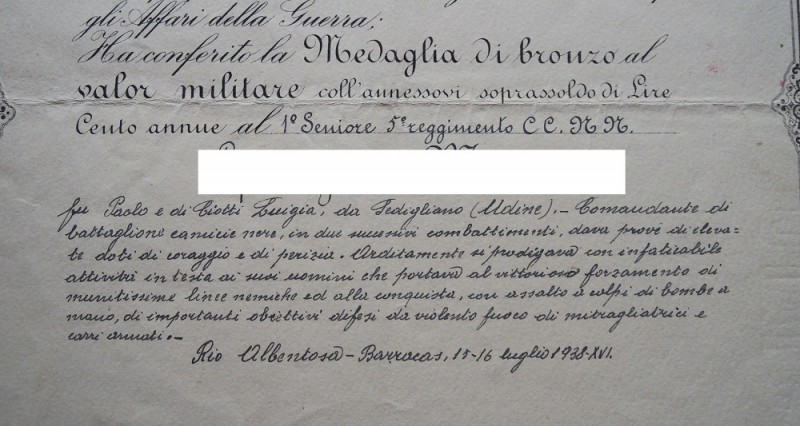 gli Affari della Guerra;
Ha conferito la Medaglia di bronzo al
valor militare coll'annessovi soprassoldo di Lire
Cento annue al 1º Seniore 5º reggimento C C. N N.
fu Paolo e di Ciotti Luigia, da Fedigliano (Udine).- Comandante di
battaglione camicie nere, in due successivi combattimenti, dava prove di eleva-
te doti di coraggio e di perizia. Arditamente si prodigava con infaticabile
attività in testa ai suoi uomini che portava al vittorioso forzamento di
munitissime linee nemiche ed alla conquista, con assalto a colpi di bombe a
mano, di importanti obiettivi difesi da violento fuoco di mitragliatrici e
carri armati.-
Rio Albentosa-Barrocas, 15-16 luglio 1938-XVI.